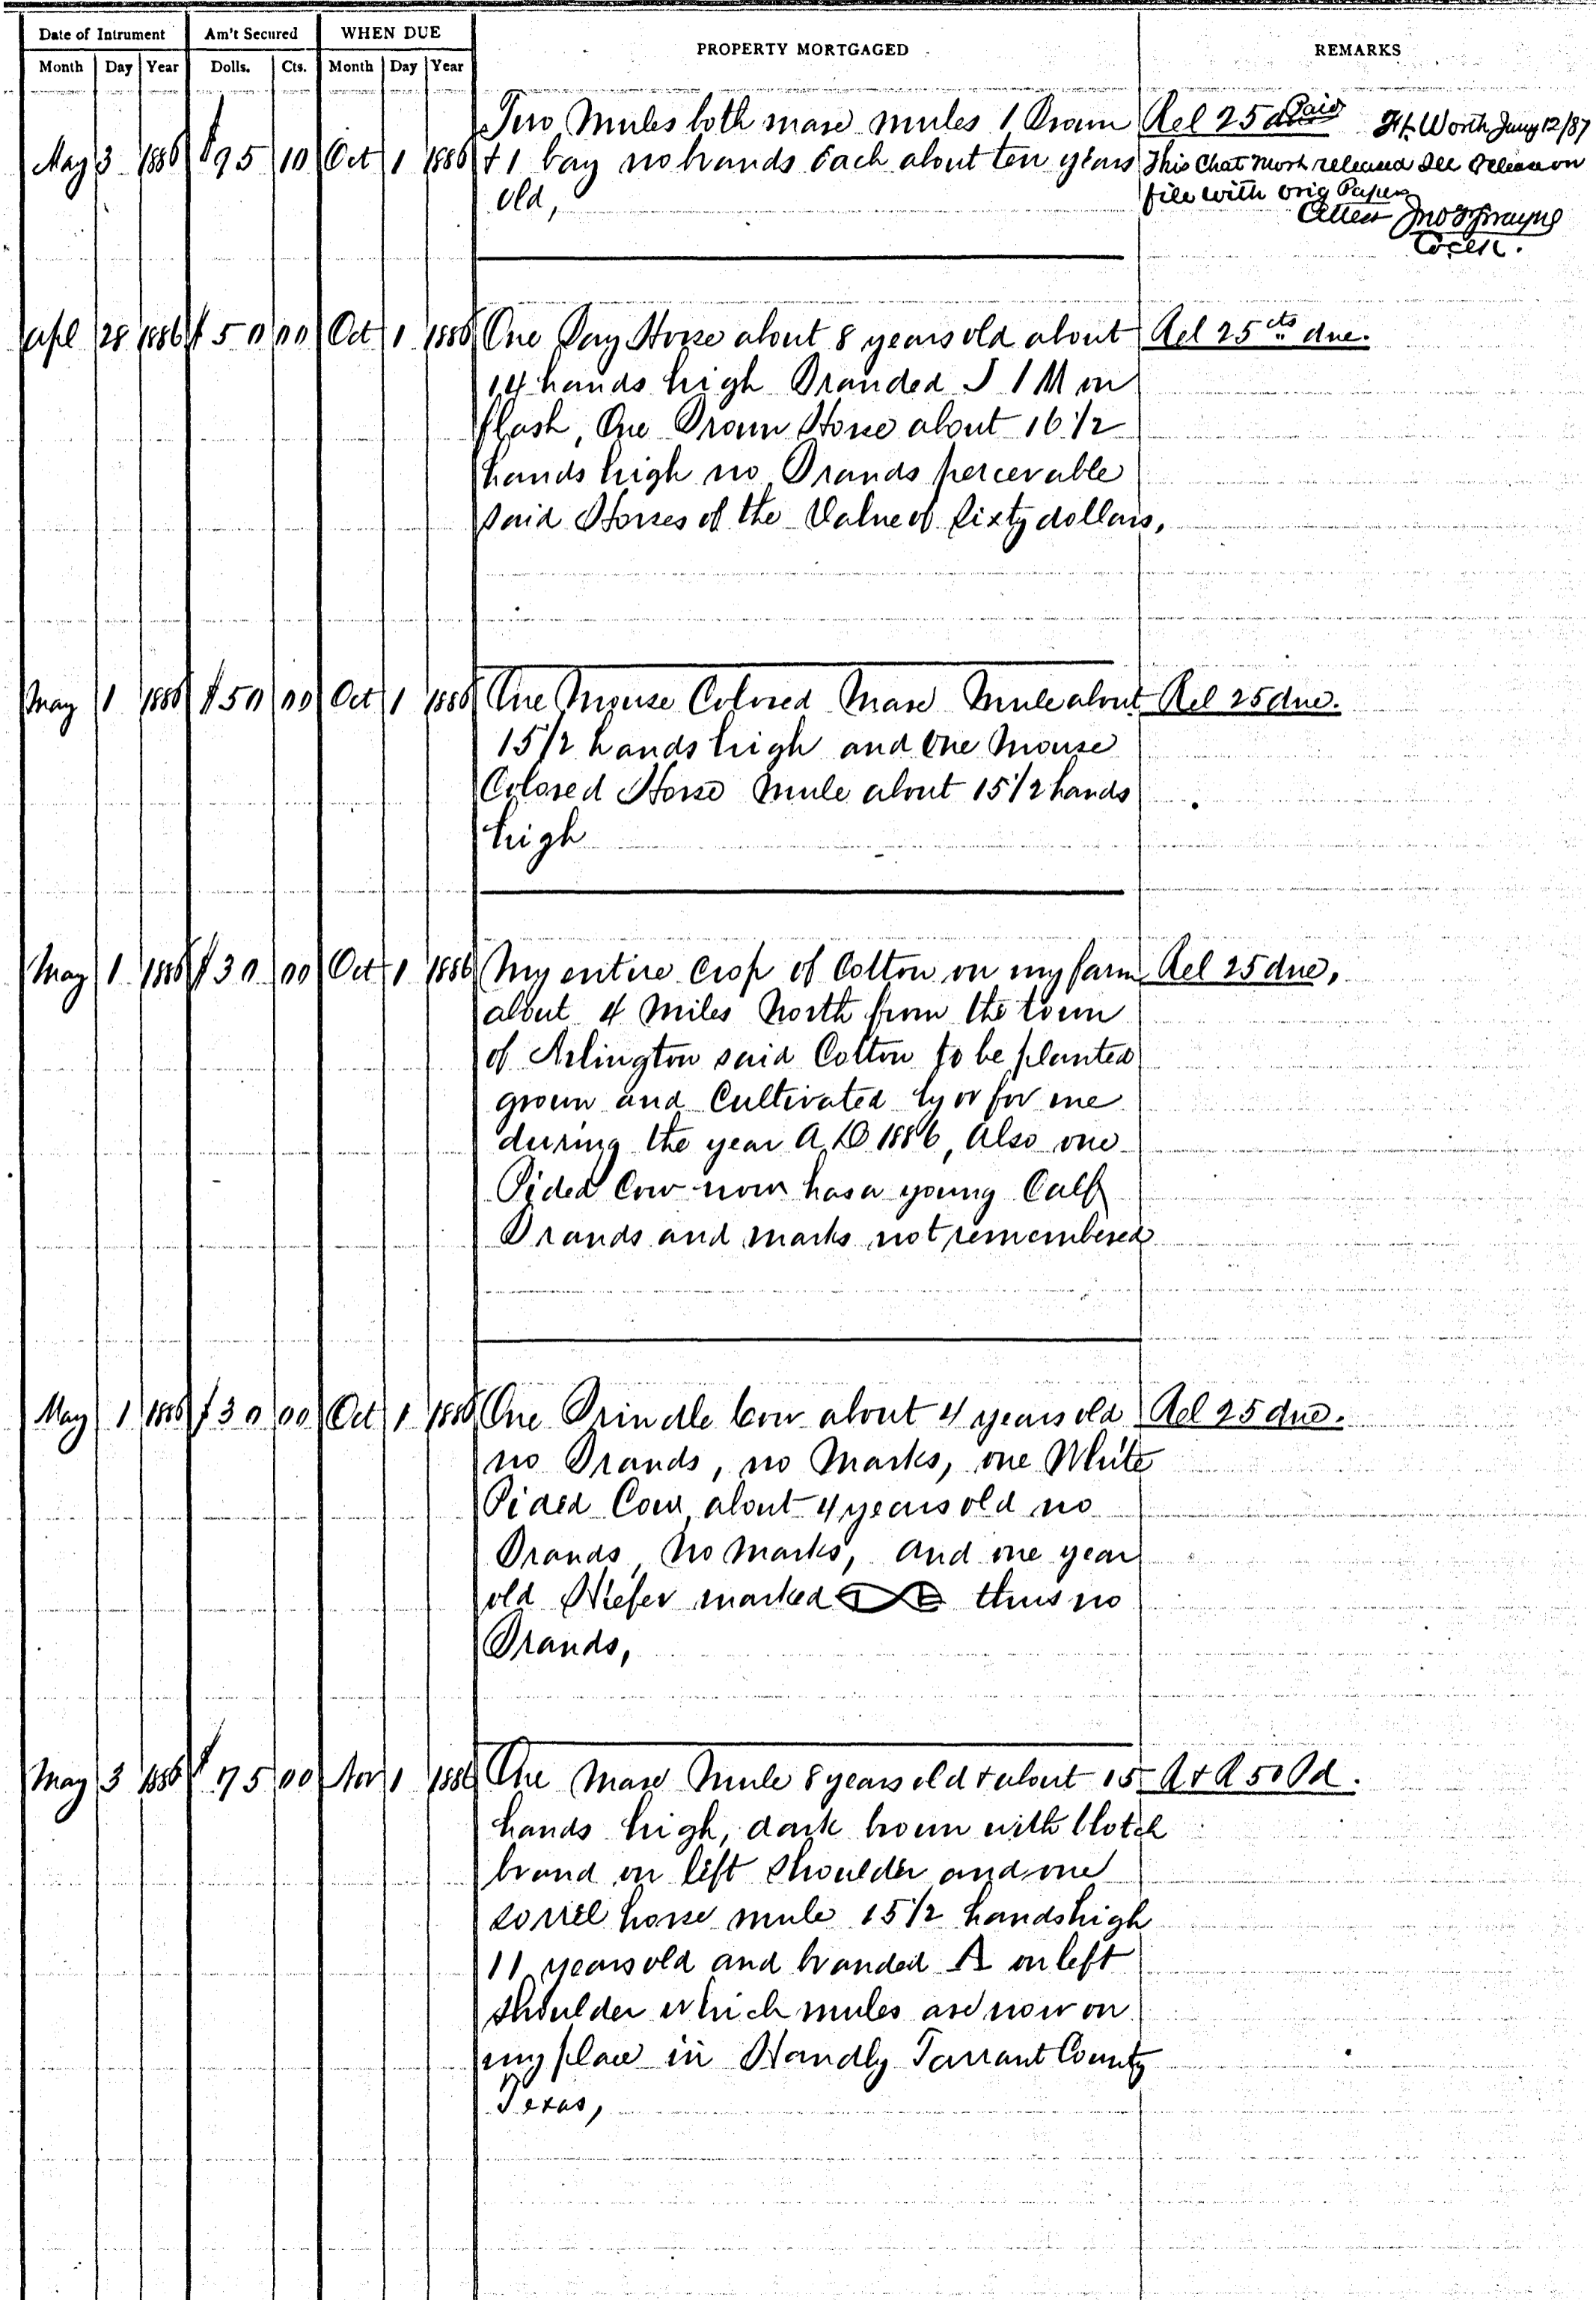 Date of Intrument Am't Secured WHEN DUE PROPERTY MORTGAGED REMARKS
Month Day Year Dolls. Cts. Month Day Year
Two Mules both mare mules 1 Brown Rel 25 due Paid Ft. Worth Jany 12/87
May 3 1886 $95 10 Oct 1 1886 + 1 bay no brands Each about ten years This Chat Mort released See release on
old, file with orig Paper
Attest Jno F Swayne
CoClk.
Apl 28 1886 $50 00 Oct 1 1886 One Bay Horse about 8 years old about Rel 25 cts due.
14 hands high Branded J I M on
flash, One Brown Horse about 16 1/2
hands high no Brands percevable
said Horses of the Value of Sixty dollars,
May 1 1886 $50 00 Oct 1 1886 One Mouse Colored Mare Mule about Rel 25 due.
15 1/2 hands high and One Mouse
Colored Horse Mule about 15 1/2 hands
high
May 1 1886 $30 00 Oct 1 1886 My entire Crop of Cotton on my farm Rel 25 due,
about 4 Miles North from the town
of Arlington said Cotton to be planted
grown and Cultivated by or for me
during the year A.D. 1886, Also one
Pided Cow now has a young Calf
Brands and marks not remembered
May 1 1886 $30 00 Oct 1 1886 One Brindle Cow about 4 years old Rel 25 due.
no Brands, no Marks, one White
Pided Cow about 4 years old no
Brands, No Marks, And one year
old Hiefer marked thus no
Brands,
May 3 1886 $75 00 Nov 1 1886 One Mare Mule 8 years old & about 15 R & R 50 Pd.
hands high, dark brown with blotch
brand on left shoulder and one
sorrel horse mule 15 1/2 hands high
11 years old and branded A on left
shoulder which mules are now on
my place in Handly Tarrant County
Texas,